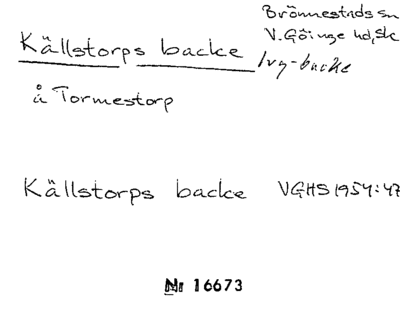 Brönnestads sn
V. Göinge hd, Sk
Källstorps backe
å Tormestorp
Källstorps backe VGHS 1954:47
Nr 16673